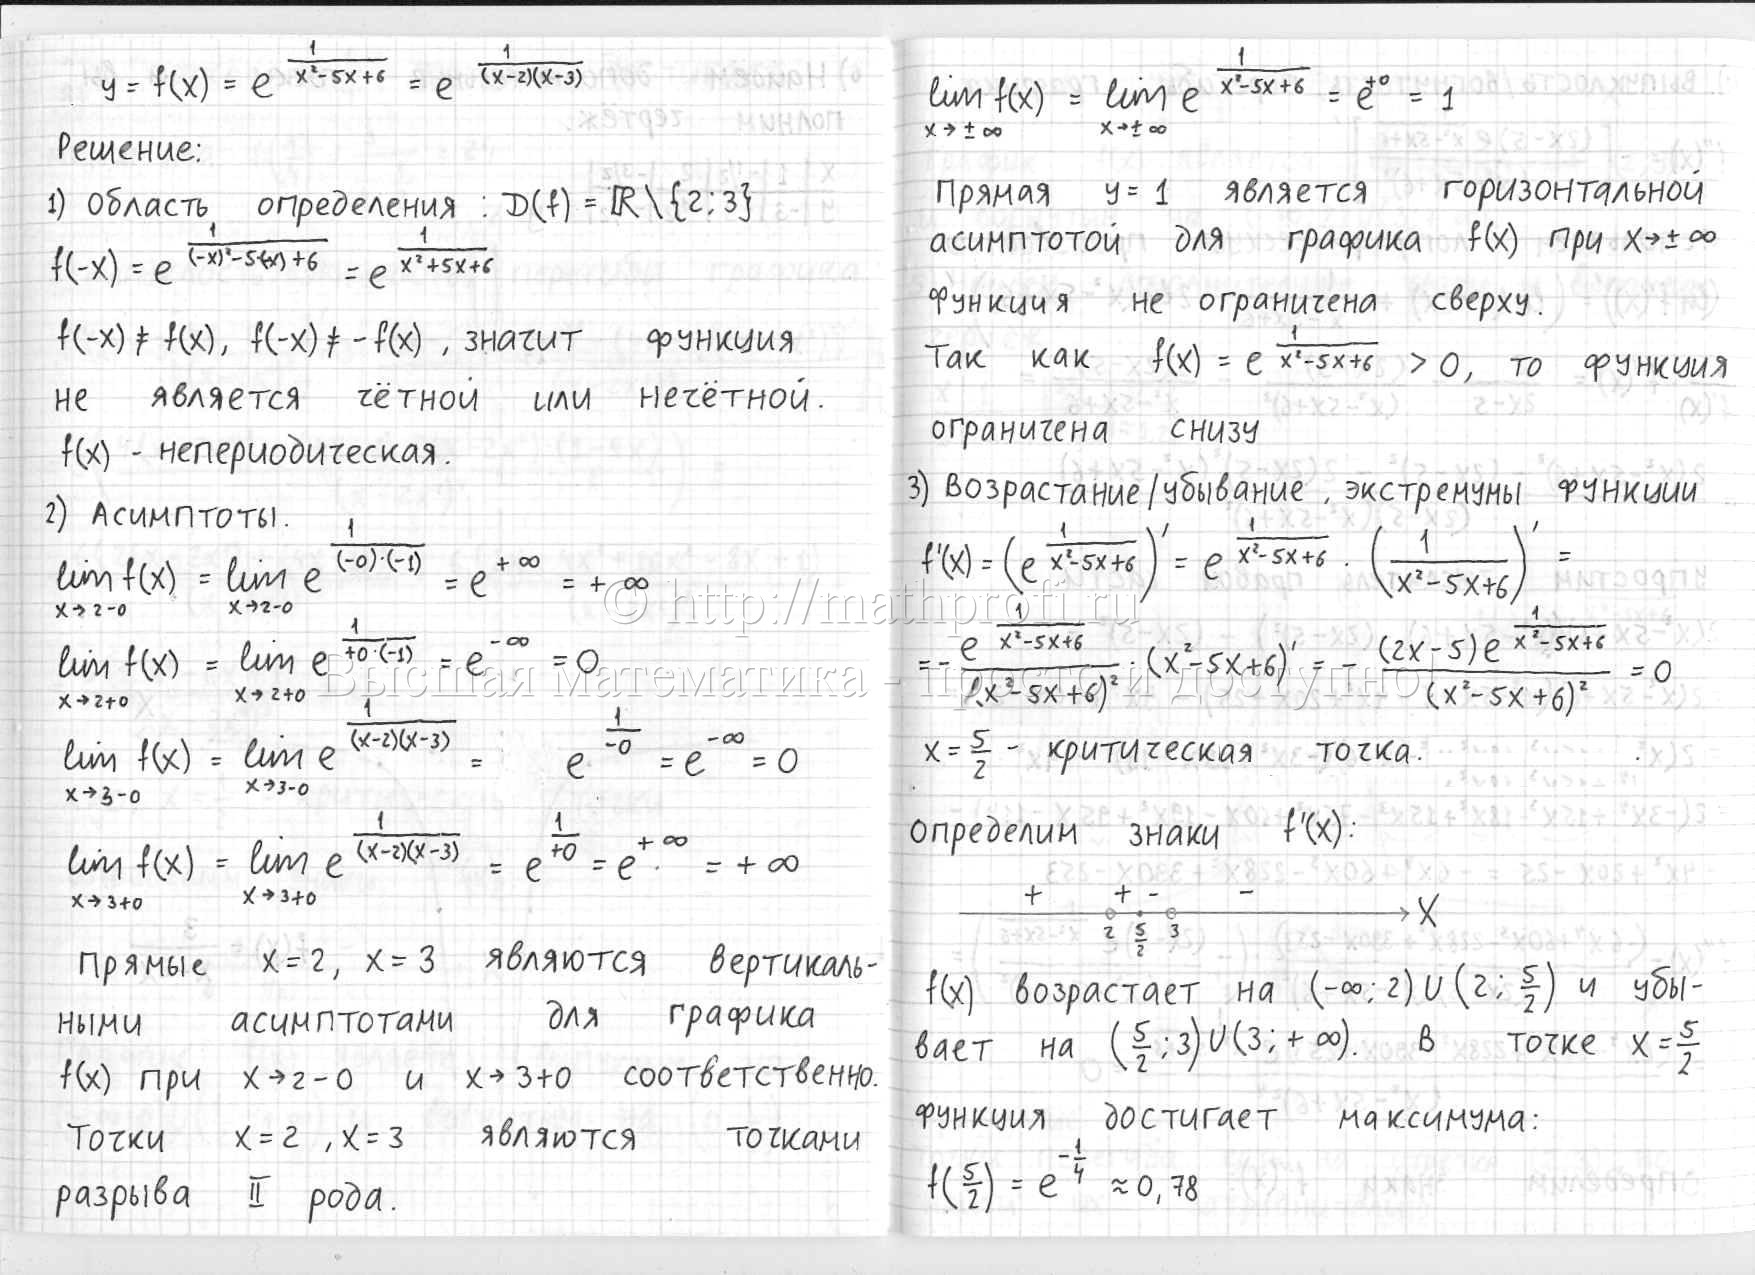 y = f(x) = e^(1/(x²-5x+6)) = e^(1/((x-2)(x-3)))
Решение:
1) Область определения : D(f) = ℝ\{2; 3}
f(-x) = e^(1/((-x)²-5(-x)+6)) = e^(1/(x²+5x+6))
f(-x) ≠ f(x), f(-x) ≠ -f(x), значит функция
не является чётной или нечётной.
f(x) - непериодическая.
2) Асимптоты.
lim f(x) = lim e^(1/((-0)·(-1))) = e^(+∞) = +∞
x→2-0 x→2-0
lim f(x) = lim e^(1/(+0·(-1))) = e^(-∞) = 0
x→2+0 x→2+0
lim f(x) = lim e^(1/((x-2)(x-3))) = e^(1/-0) = e^(-∞) = 0
x→3-0 x→3-0
lim f(x) = lim e^(1/((x-2)(x-3))) = e^(1/+0) = e^(+∞) = +∞
x→3+0 x→3+0
Прямые x=2, x=3 являются вертикаль-
ными асимптотами для графика
f(x) при x→2-0 и x→3+0 соответственно.
Точки x=2, x=3 являются точками
разрыва II рода.
lim f(x) = lim e^(1/(x²-5x+6)) = e^(+0) = 1
x→±∞ x→±∞
Прямая y=1 является горизонтальной
асимптотой для графика f(x) при x→±∞
Функция не ограничена сверху.
Так как f(x) = e^(1/(x²-5x+6)) > 0, то функция
ограничена снизу
3) Возрастание/убывание, экстремумы функции
f'(x) = (e^(1/(x²-5x+6)))' = e^(1/(x²-5x+6)) · (1/(x²-5x+6))' =
= - e^(1/(x²-5x+6))/(x²-5x+6)² · (x²-5x+6)' = - (2x-5)e^(1/(x²-5x+6))/(x²-5x+6)² = 0
x = 5/2 - критическая точка.
Определим знаки f'(x):
+ + - -
2 5/2 3 X
f(x) возрастает на (-∞; 2) U (2; 5/2) и убы-
вает на (5/2; 3) U (3; +∞). В точке x = 5/2
функция достигает максимума:
f(5/2) = e^(-1/4) ≈ 0,78
© http://mathprofi.ru
Высшая математика - просто и доступно!